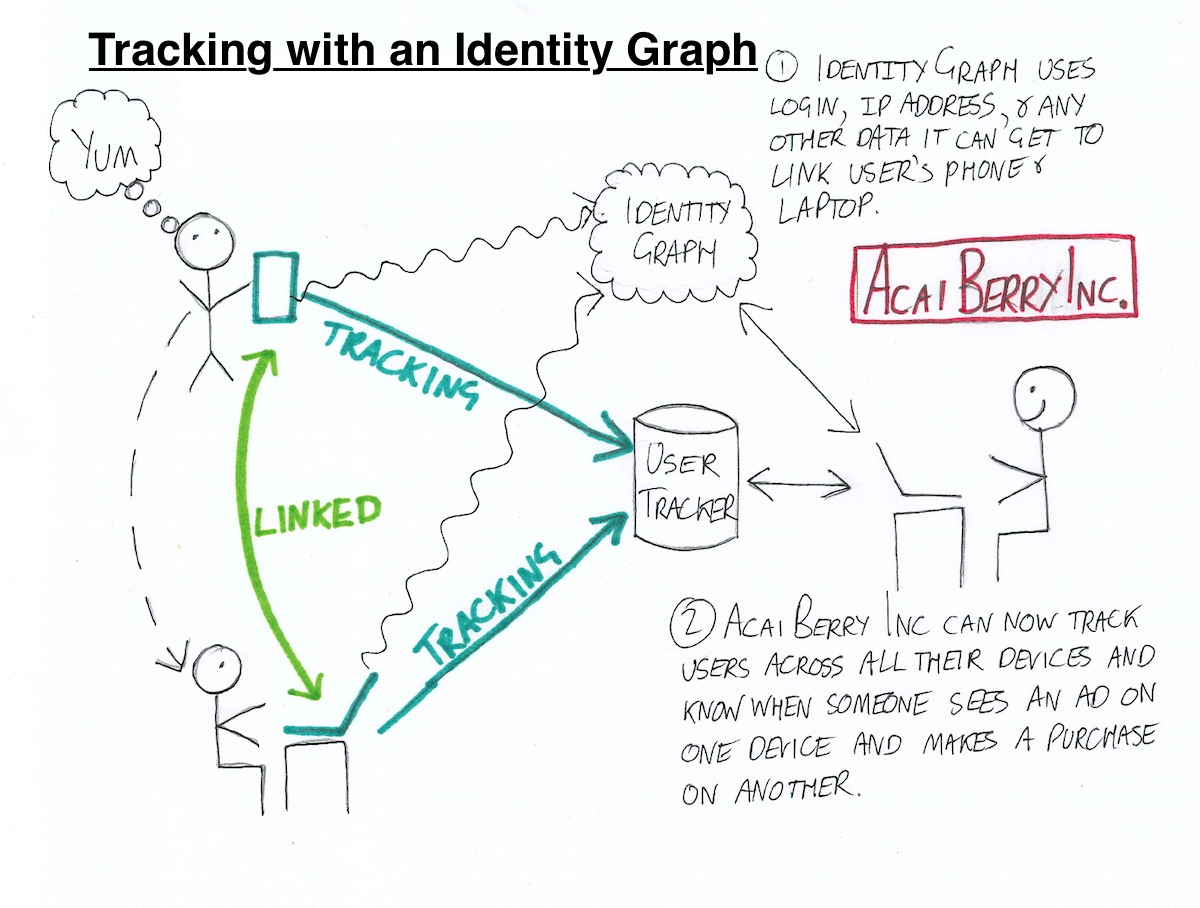 Tracking with an Identity Graph
① IDENTITY GRAPH USES
LOGIN, IP ADDRESS, & ANY
OTHER DATA IT CAN GET TO
LINK USER'S PHONE &
LAPTOP.
YUM
IDENTITY
GRAPH
ACAI BERRY INC.
TRACKING
USER
TRACKER
LINKED
TRACKING
② ACAI BERRY INC CAN NOW TRACK
USERS ACROSS ALL THEIR DEVICES AND
KNOW WHEN SOMEONE SEES AN AD ON
ONE DEVICE AND MAKES A PURCHASE
ON ANOTHER.